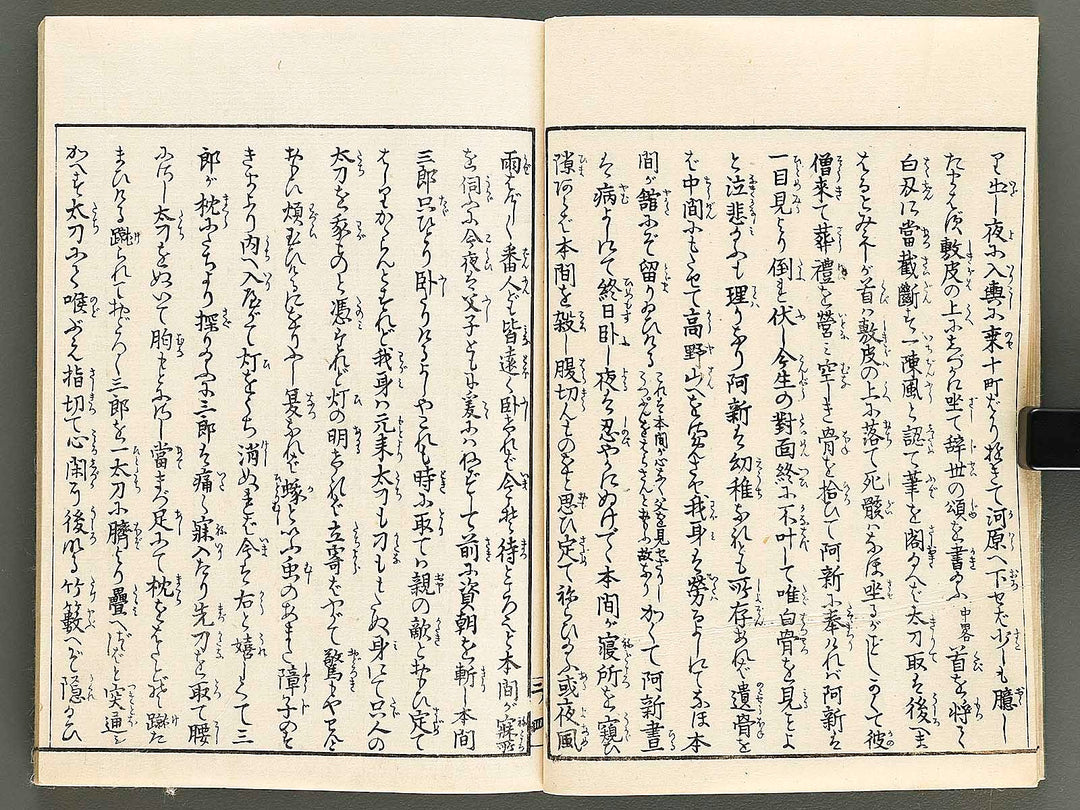 り出し夜に入輿に乗十町ばかり行きて河原へ下せバ少しも臆し
たるさまなく敷皮の上に居なほり坐て辞世の頌を書ふ 中畧 首を将て
白刃に當截斷す一陳風と認て筆を閣るハ太刀取ハ後へま
はるとみえしが首ハ敷皮の上に落て死骸ハなほ坐るがごとしかくて彼
僧来て葬禮を營ミ空しき骨を拾ひて阿新に奉れバ阿新ハ
一目見より倒れ伏し今生の對面終に不叶して唯白骨を見ことよ
と泣悲むも理りなり阿新ハ幼稚なれども所存あれバ遺骨を
ば中間にもたせて高野山へをさめさせ我身ハ労るよしにてなほ本
間が舘にぞ留りゐける これハ本間が心なく父を見せざりし うつぷんをさんぜんとおもふ故なり かくて阿新晝
ハ病よしにて終日卧し夜ハ忍やかにぬけでて本間が寝所を窺ひ
隙あらば本間を殺し腹切んものをと思ひ定て祢らひゐるに或夜風
雨はげしく番人ども皆遠く卧けれバ今こそ待ところよと本間が寝所
を伺ふに今夜ハ父子ともに爰にハ在ずして前に資朝を斬し本間
三郎只ひとり卧てゐけるよしやこれも時に取てハ親の敵とおもひ定て
はしりかからんとすれど我身ハ元来太刀も刀ももたぬ身にて只人の
太刀を我ものと憑けれど灯の明らかなれバ立寄バやがて驚もやせんと
おもひ煩ひゐたるにをりふし夏なれバ蛾といふ虫のあまた障子のと
きまより内へ入灯をうち消ぬれバ今ハ右と嬉しくて三
郎が枕にたちより探りみるに三郎ハ痛く寐入たり先刀を取て腰
にさし太刀をぬいて胸もとにさし當まづ足にて枕をはたと蹴た
まひける蹴られておどろく三郎を一太刀に臍より疊へばと突通し
かへす太刀にて喉ぶえ指切て心閑に後なる竹籔へぞ隠れたまひ
三ノ四